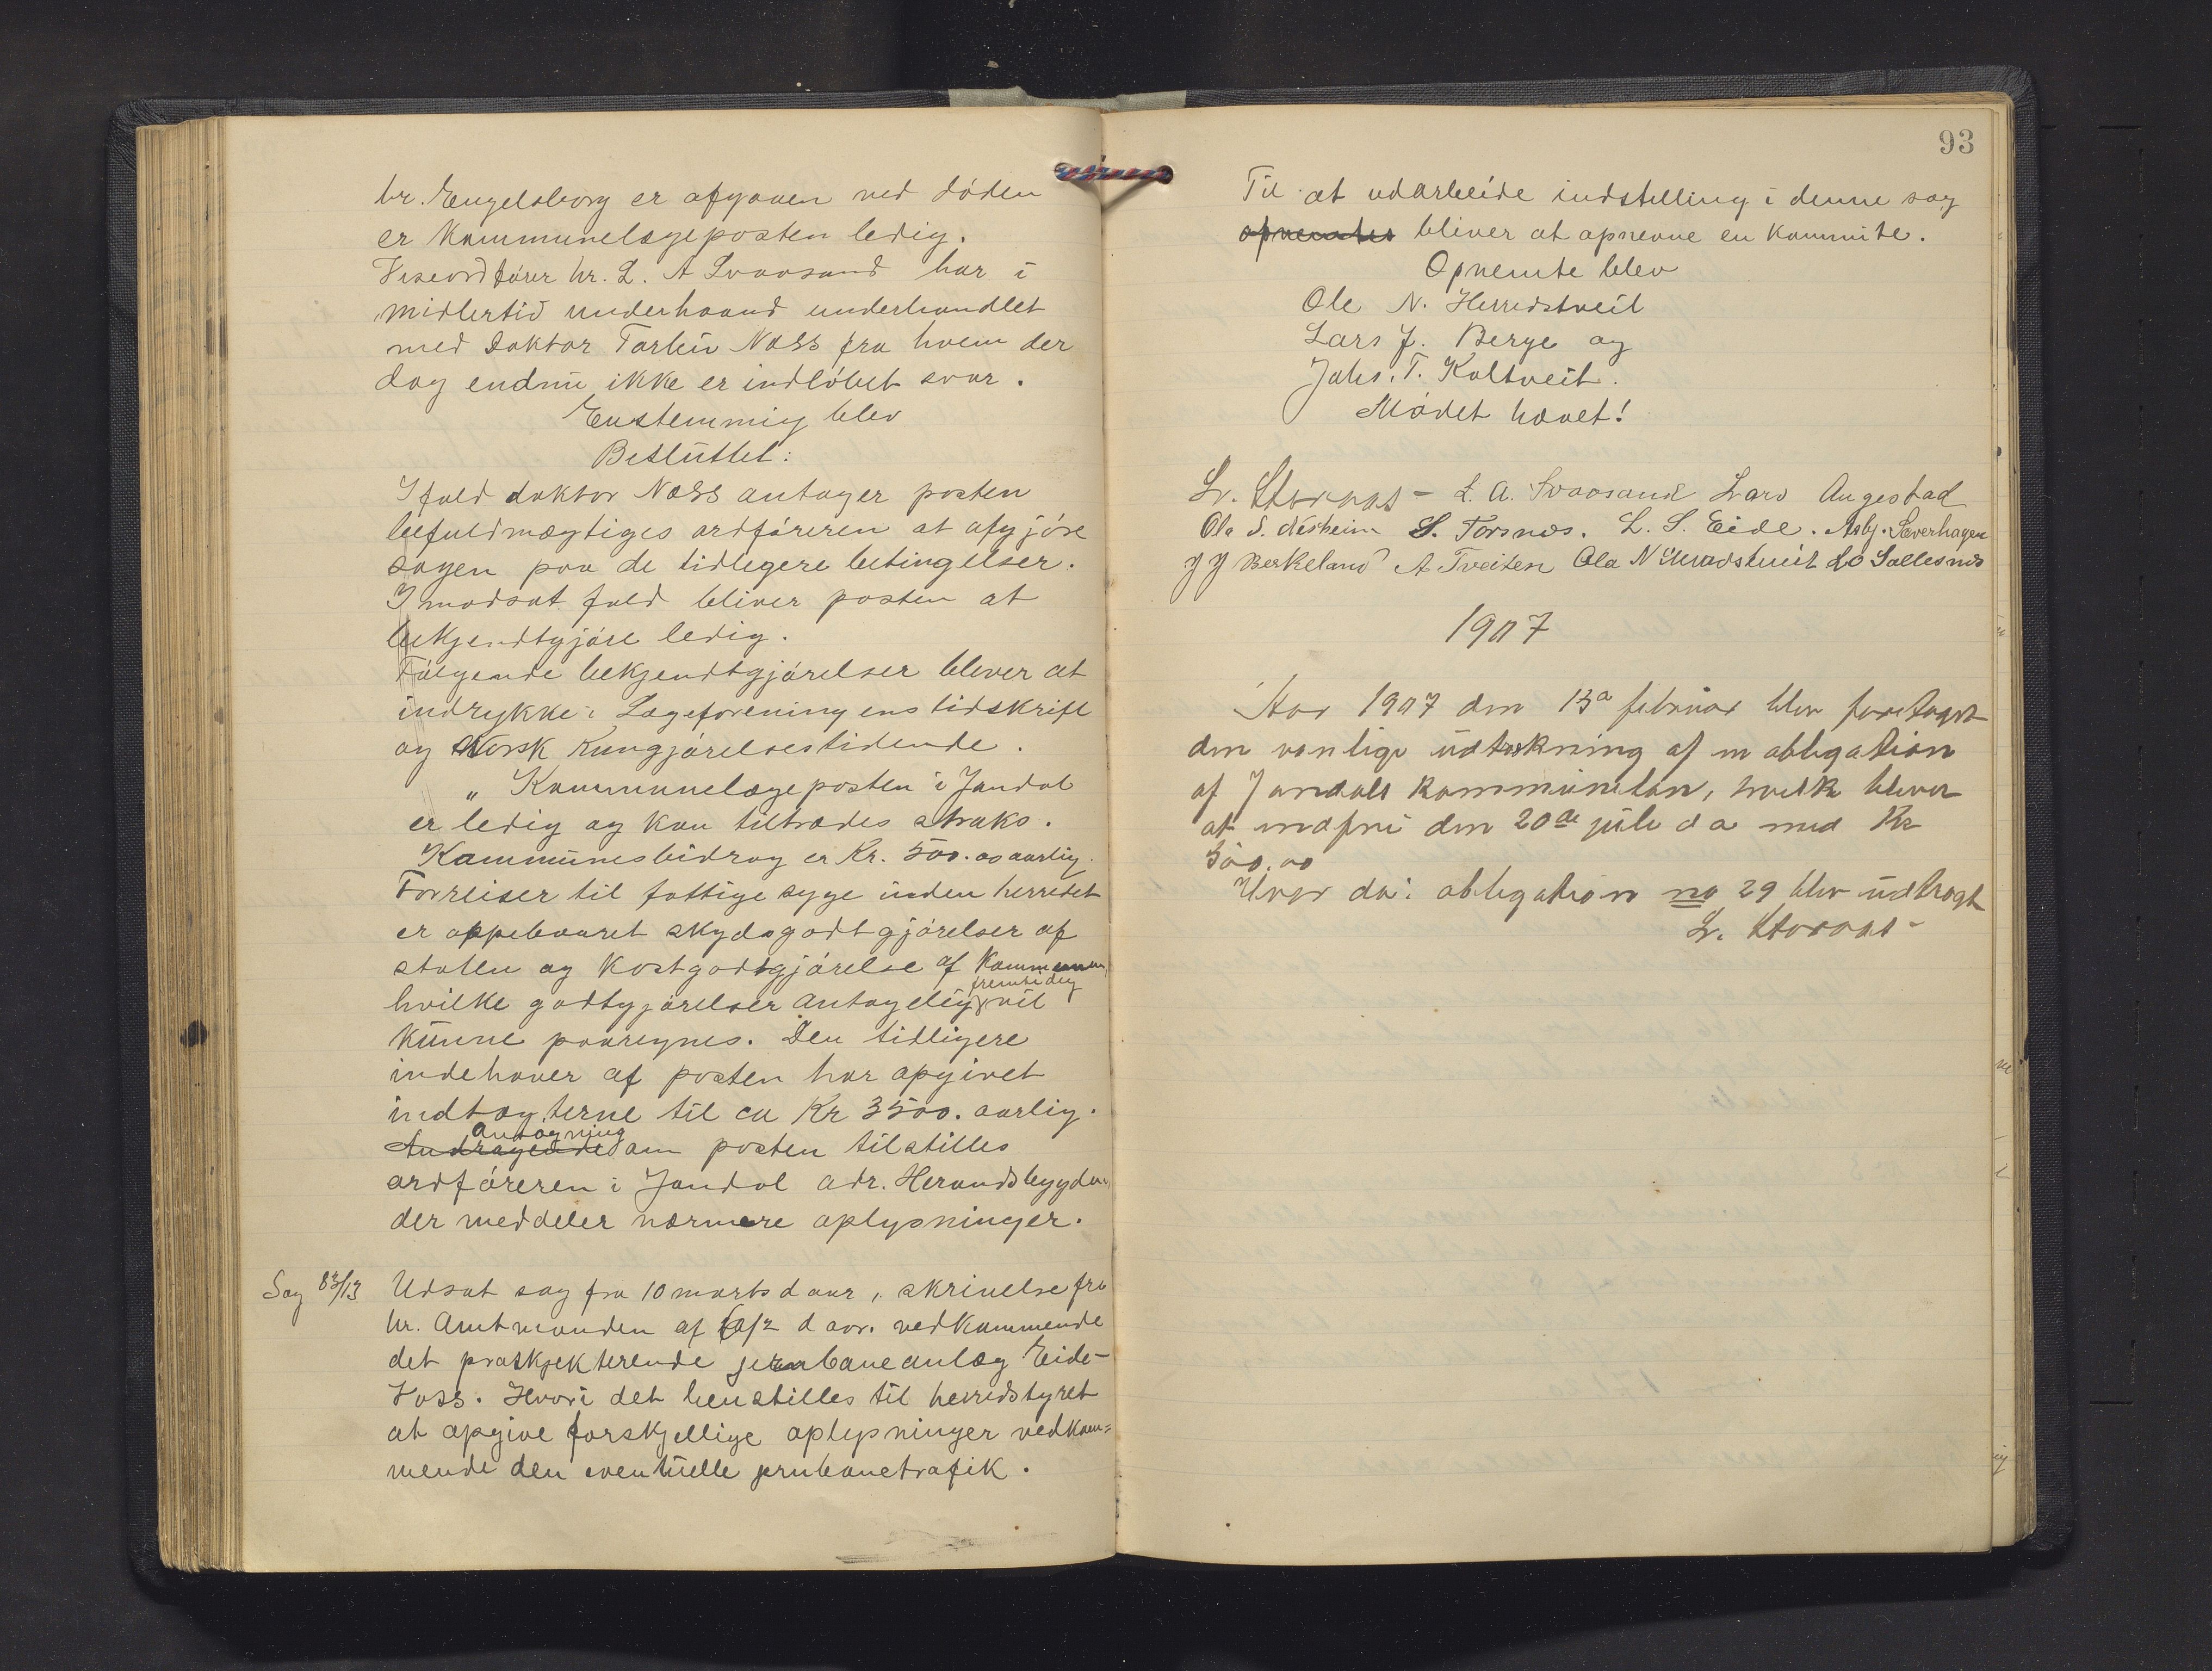 hr. Engelsborg er afgaaen ved døden
er Kommunelægeposten ledig.
Viseordfører hr. L. A Svaasand har i
midlertid underhaand underhandlet
med Doktor Næss fra hvem der
dog endnu ikke er indløbet svar.
Enstemmig blev
Besluttet:
I fald doktor Næss antager posten
befuldmægtiges ordføreren at afgjøre
sagen paa de tidlegere betingelser.
I modsat fald bliver posten at
bekjendtgjøre ledig.
Følgende bekjendtgjørelser blever at
indrykke i Lægeforeningens tidskrift
og Norsk Kungjørelsestidende.
„ Kommunelægeposten i Jondal
er ledig og kan tiltrædes straks.
Kommunesbidrag er Kr. 500.00 aarlig.
For reiser til fattige syge inden herredet
er oppebaaret skydsgodtgjørelser af
staten og Kostgodtgjørelse af Kommunen,
fremtidig
hvilke godtgjørelser antagelig vil
Kunne paaregnes. Den tidligere
indehaver af posten har opgivet
indtægterne til ca Kr 3500. aarlig.
Ansøgning
Andragende om posten tilstilles
ordføreren i Jondal adr. Herandsbygden,
der meddeler nærmere oplysninger.
Sag 83/13 Udsat sag fra 10 marts d aar, skrivelse fra
hr. Amtmanden af d aar. vedkommende
det prosjekterende jernbaneanlæg Eide-
Voss. Hvori det henstilles til herredstyret
at opgive forskjellige oplysninger vedkom=
mende den eventuelle jernbanetrafik.
93
Til at udarbeide indstilling i denne sag
opnevntes bliver at opnevne en Kommite.
Opnevnte blev
Ole N. Herredstveit
Lars J. Berge og
Johs. T. Koltveit.
Mødet hævet!
L. Storaas - L. A. Svaasand Lars Augestad
Ola S. Nesheim S. Torsnæs. L. S. Eide. Asbj. Samerhagen
J J Berkeland A Tveiten Ola N Herredstveit L O Sollesnes
1907
Aar 1907 den 13de februar blev foretaget
den vanlige udtrækning af en obligation
af Jondals Kommunelån, hvilk bliver
at indfri den 20de juli d a med Kr
500.00
Hvor da: obligation no 29 blev udtragt
L. Storaas -